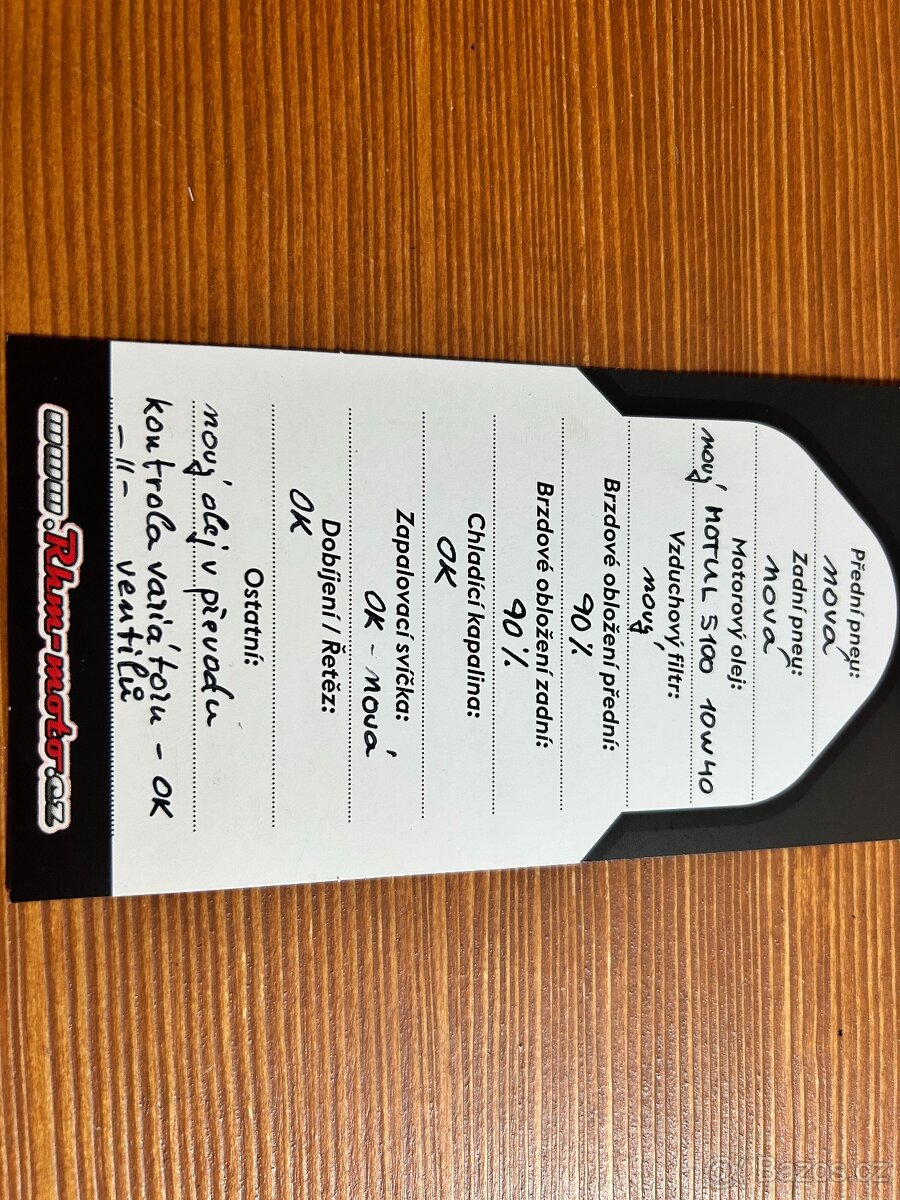 Přední pneu:
nová
Zadní pneu:
nová
Motorový olej:
nový MOTUL 5100 10W40
Vzduchový filtr:
nový
Brzdové obložení přední:
90%
Brzdové obložení zadní:
90%
Chladící kapalina:
OK
Zapalovací svíčka:
OK - nová
Dobíjení / Řetěz:
OK
Ostatní:
nový olej v převodu
kontrola variátoru - OK
-||- ventilů
www.Rhm-moto.cz
Bazos.cz